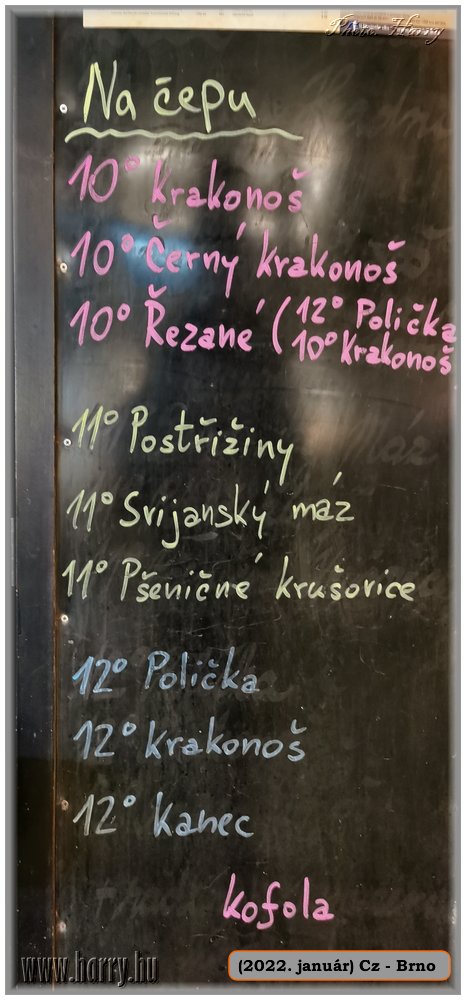 Photo: Harry
Na čepu
10° Krakonoš
10° Černý krakonoš
10° Řezané (12° Polička
10° Krakonoš
11° Postřižiny
11° Svijanský máz
11° Pšeničné krušovice
12° Polička
12° Krakonoš
12° Kanec
kofola
www.harry.hu
(2022. január) Cz - Brno